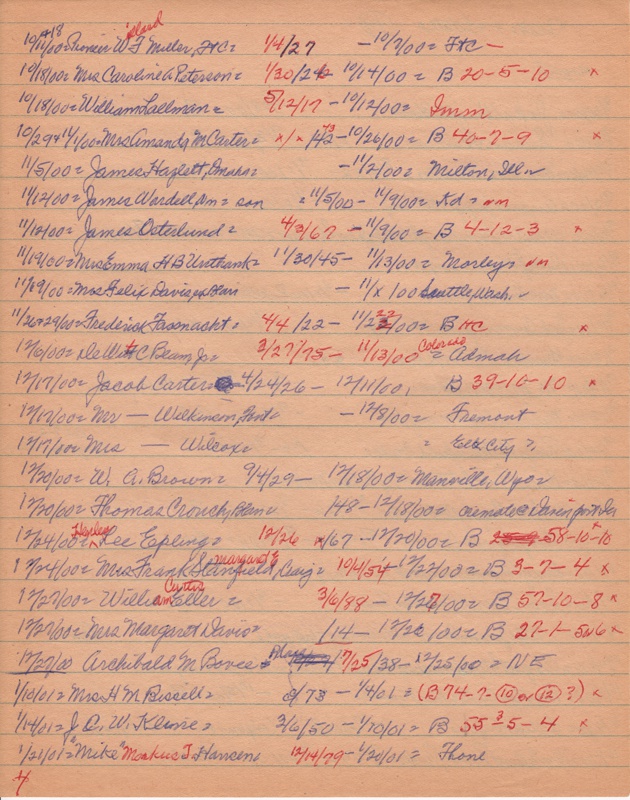 10/11+18/00= Pioneer W F Millard Miller, FtC= 1/4/27 - 10/7/00= FtC -
10/18/00= Mrs Caroline A. Peterson= 1/30/22 10/14/00= B 20-5-10 x
10/18/00= William Lallman= 5/12/17 - 10/12/00= Imm
10/29+11/1/00= Mrs Amanda M Carter= x/x/42 73 - 10/26/00= B 40-7-9 x
11/5/00= James Hazlett, Omaha= - 11/2/00= Milton, Ill
11/12/00= James Wardell, Om= son = 11/5/00 - 11/9/00= Kd=
11/12/00= James Osterlund= 4/3/67 - 11/9/00= B 4-12-3 x
11/19/00= Mrs Emma H B Unthank= 11/30/45 - 11/13/00= Morley=
11/19/00= Mrs Felix Davis, Blair - 11/x/00 Seattle, Wash.
11/26+29/00= Frederick Fassnacht= 4/4/22 - 11/22/00= B HC x
12/6/00= DeWitt C Beam Jr= 3/27/75 - 11/13/00 Colorado = Admah
12/17/00= Jacob Carter= 4/24/26 - 12/11/00, B 39-10-10 x
12/17/00= Mr - Wilkinson, Font= - 12/8/00= Fremont
12/17/00= Mrs - Wilcox= = Elk City =,
12/20/00= W. A. Brown= 9/4/29 - 12/18/00= Manville, Wyo=
12/20/00= Thomas Crouch, Blair= /48 - 12/18/00= cremated Davenport Ia
12/24/00= Harley Lee Epling= 12/26 x/67 - 12/20/00= B 58-10-10 x
12/24/00= Mrs Frank Stanfield, Margaret E Craig= 10/4/54 12/22/00= B 3-7-4 x
12/27/00= William Curtis Eller= 3/6/88 - 12/26/00= B 57-10-8 x
12/27/00= Mrs Margaret Davis= /14 - 12/22/00= B 27-1-5N6 x
12/27/00 Archibald M Bovee= Blair 7/25/38 - 12/25/00= NE
1/10/01= Mrs H M Bissell= 8/73 - 1/4/01= (B 74-7-10 or 12?) x
1/14/01= J. C. W. Kline= 3/6/50 - 1/10/01= B 55-3-5-4 x
1/21/01= "Mike" Markus J. Hansen= 12/14/79 - 1/20/01= Fhone
4